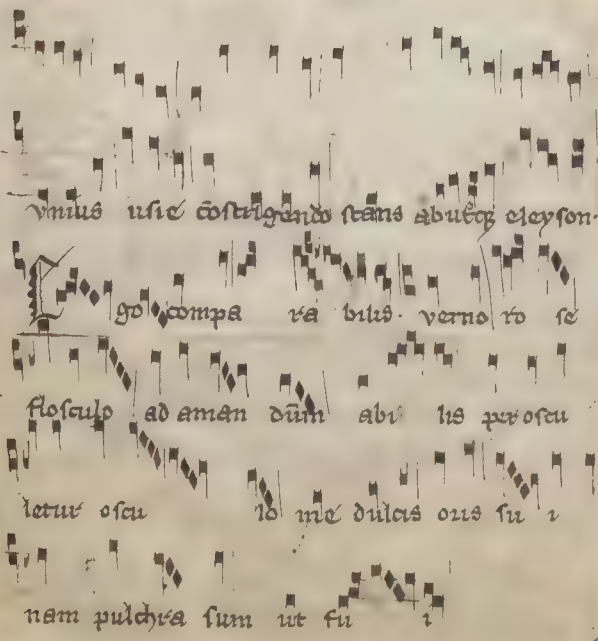 vnius usie cōstrīgendo stans ab utrq; eleyson.
Ego compa ra bilis. verno ro se
flosculo ad aman dūm abi lis per oscu
letur oscu lo me dulcis oris su i
nam pulchra sum ut fu i